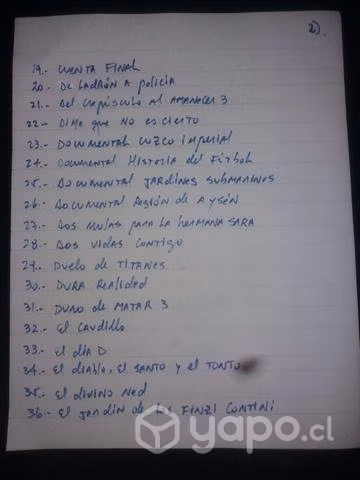 2).
19.- CUENTA FINAL
20.- DE LADRÓN A POLICÍA
21.- DEL CREPÚSCULO AL AMANECER 3
22.- DIME QUE NO ES CIERTO
23.- DOCUMENTAL CUZCO IMPERIAL
24.- DOCUMENTAL HISTORIA DEL FÚTBOL
25.- DOCUMENTAL JARDINES SUBMARINOS
26.- DOCUMENTAL REGIÓN DE AYSÉN
27.- DOS MULAS PARA LA HERMANA SARA
28.- DOS VIDAS CONTIGO
29.- DUELO DE TITANES
30.- DURA REALIDAD
31.- DURO DE MATAR 3
32.- EL CAUDILLO
33.- EL DIA D
34.- EL DIABLO, EL SANTO Y EL TONTO
35.- EL DIVINO NED
36.- EL JARDIN DE LOS FINZI CONTINI
yapo.cl